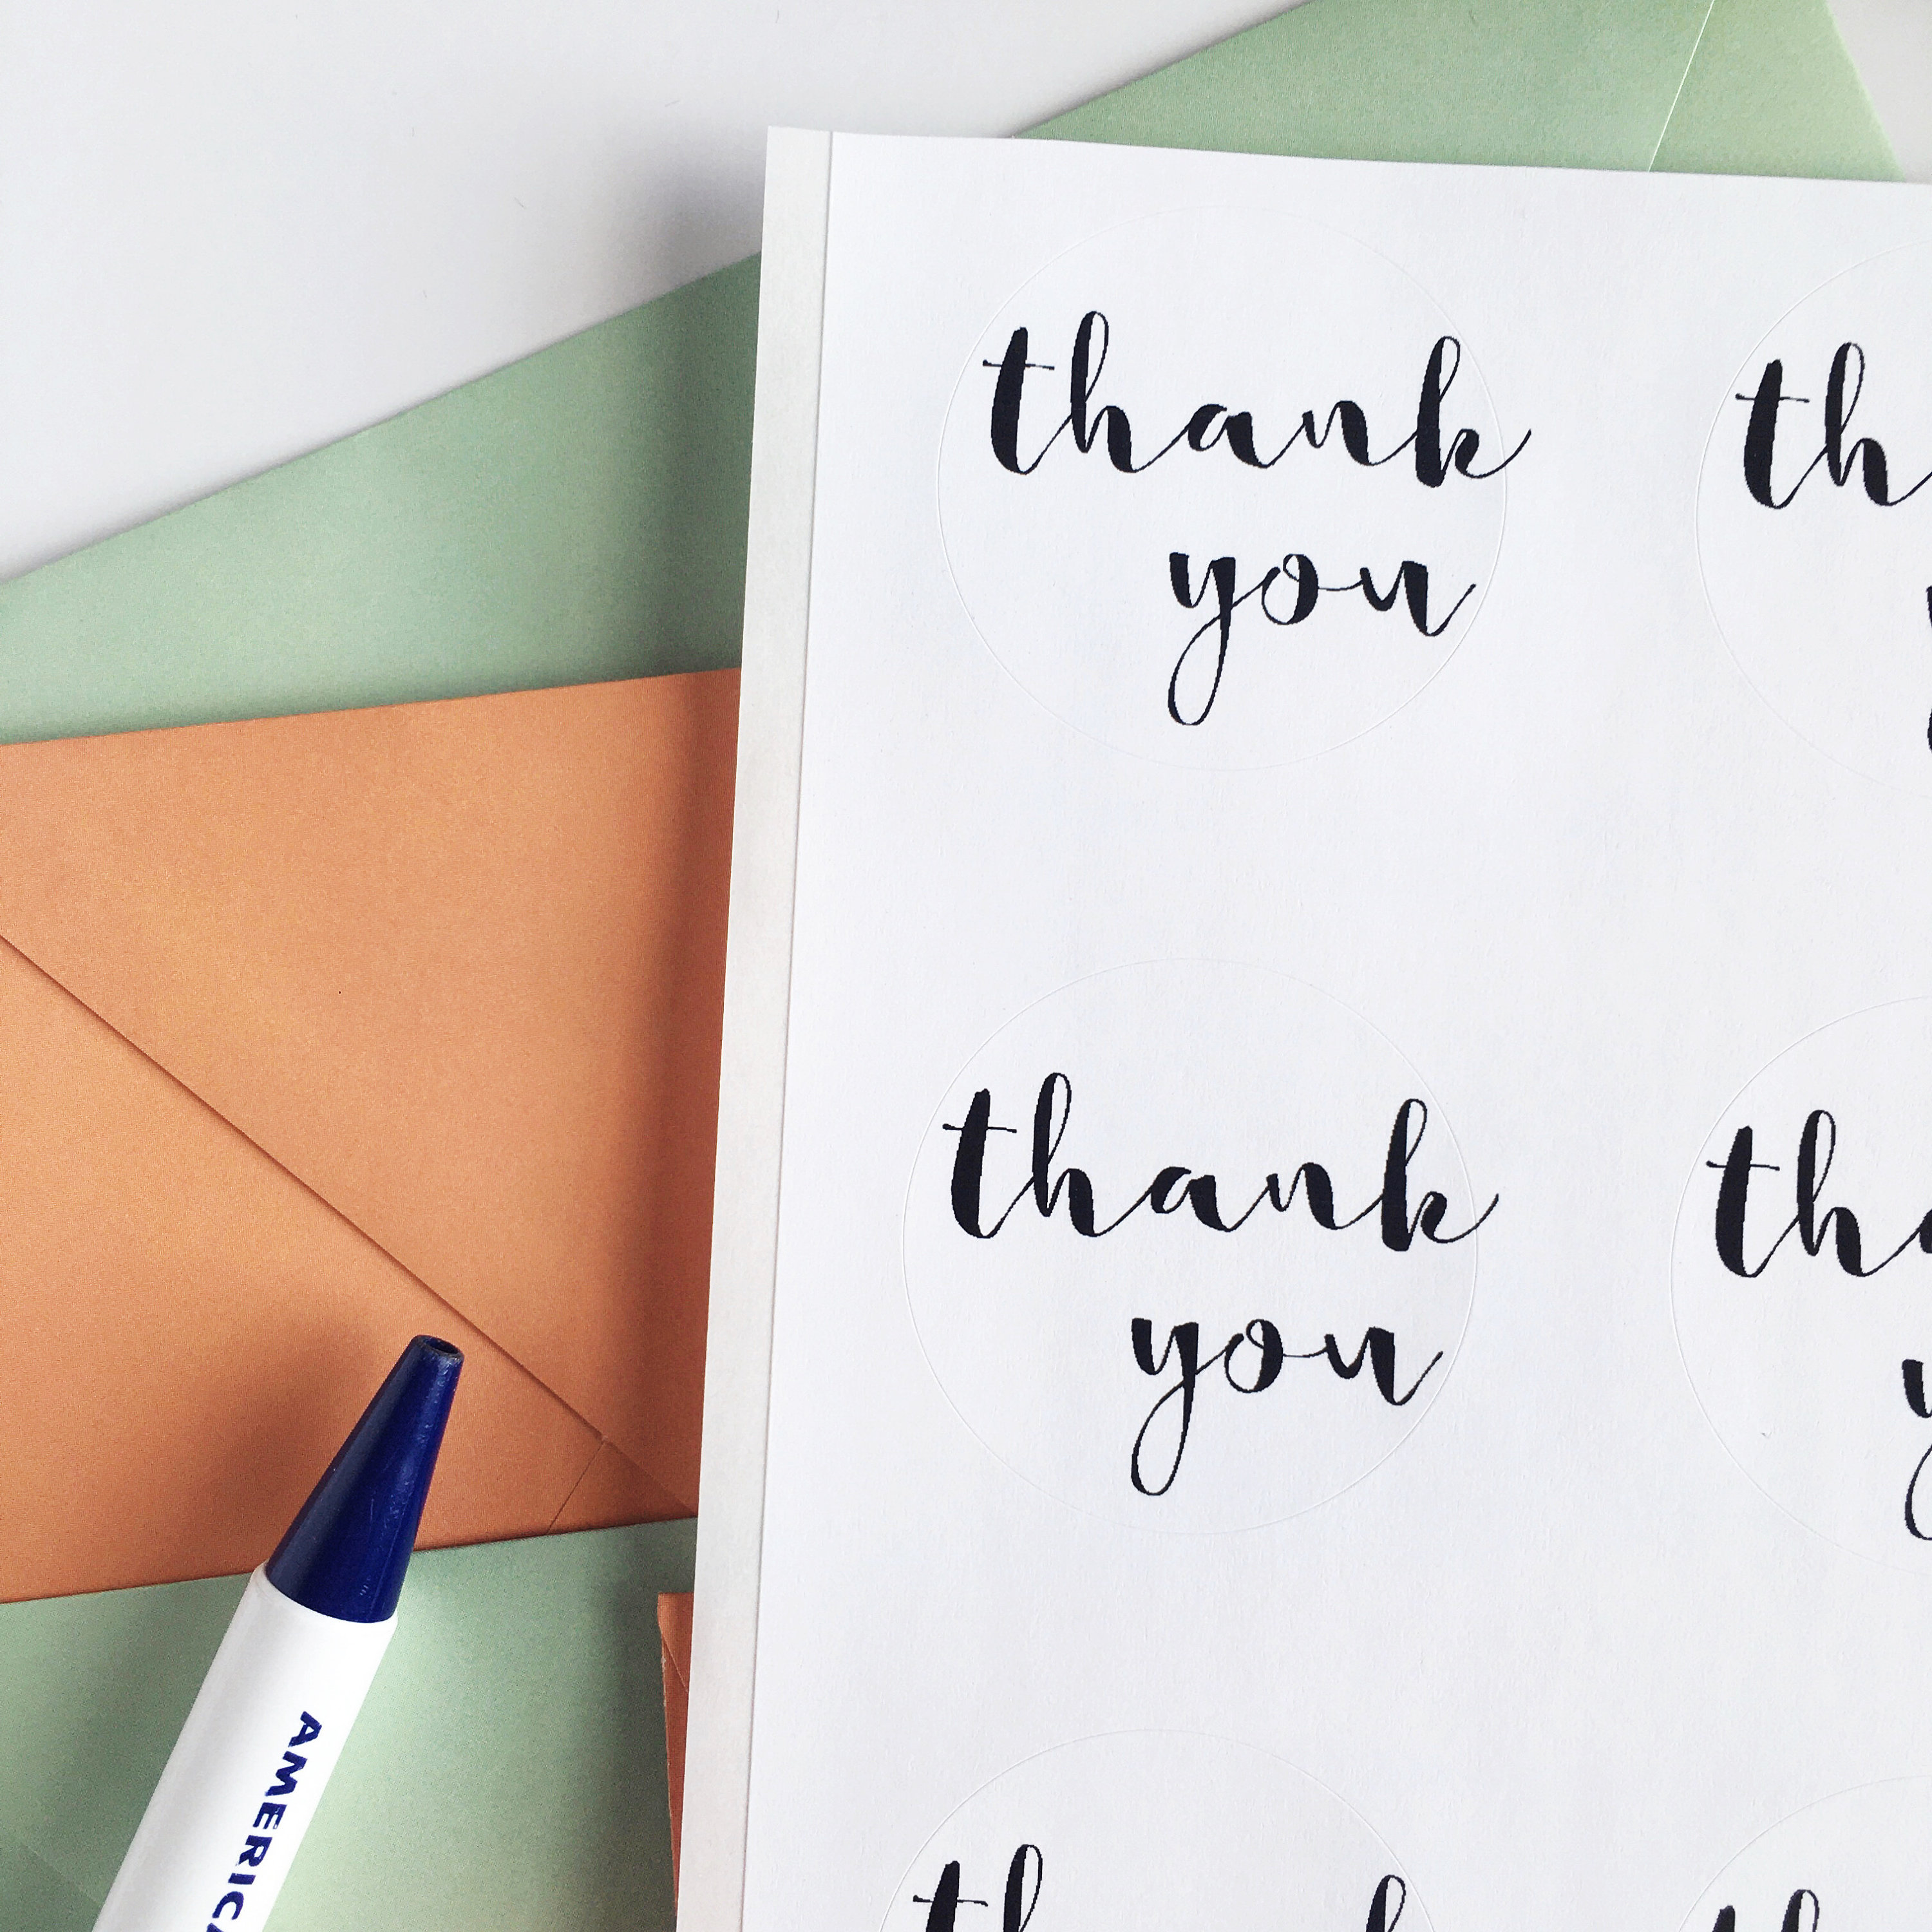 thank
you
th
thank
you
tha
y
th
AMERICA